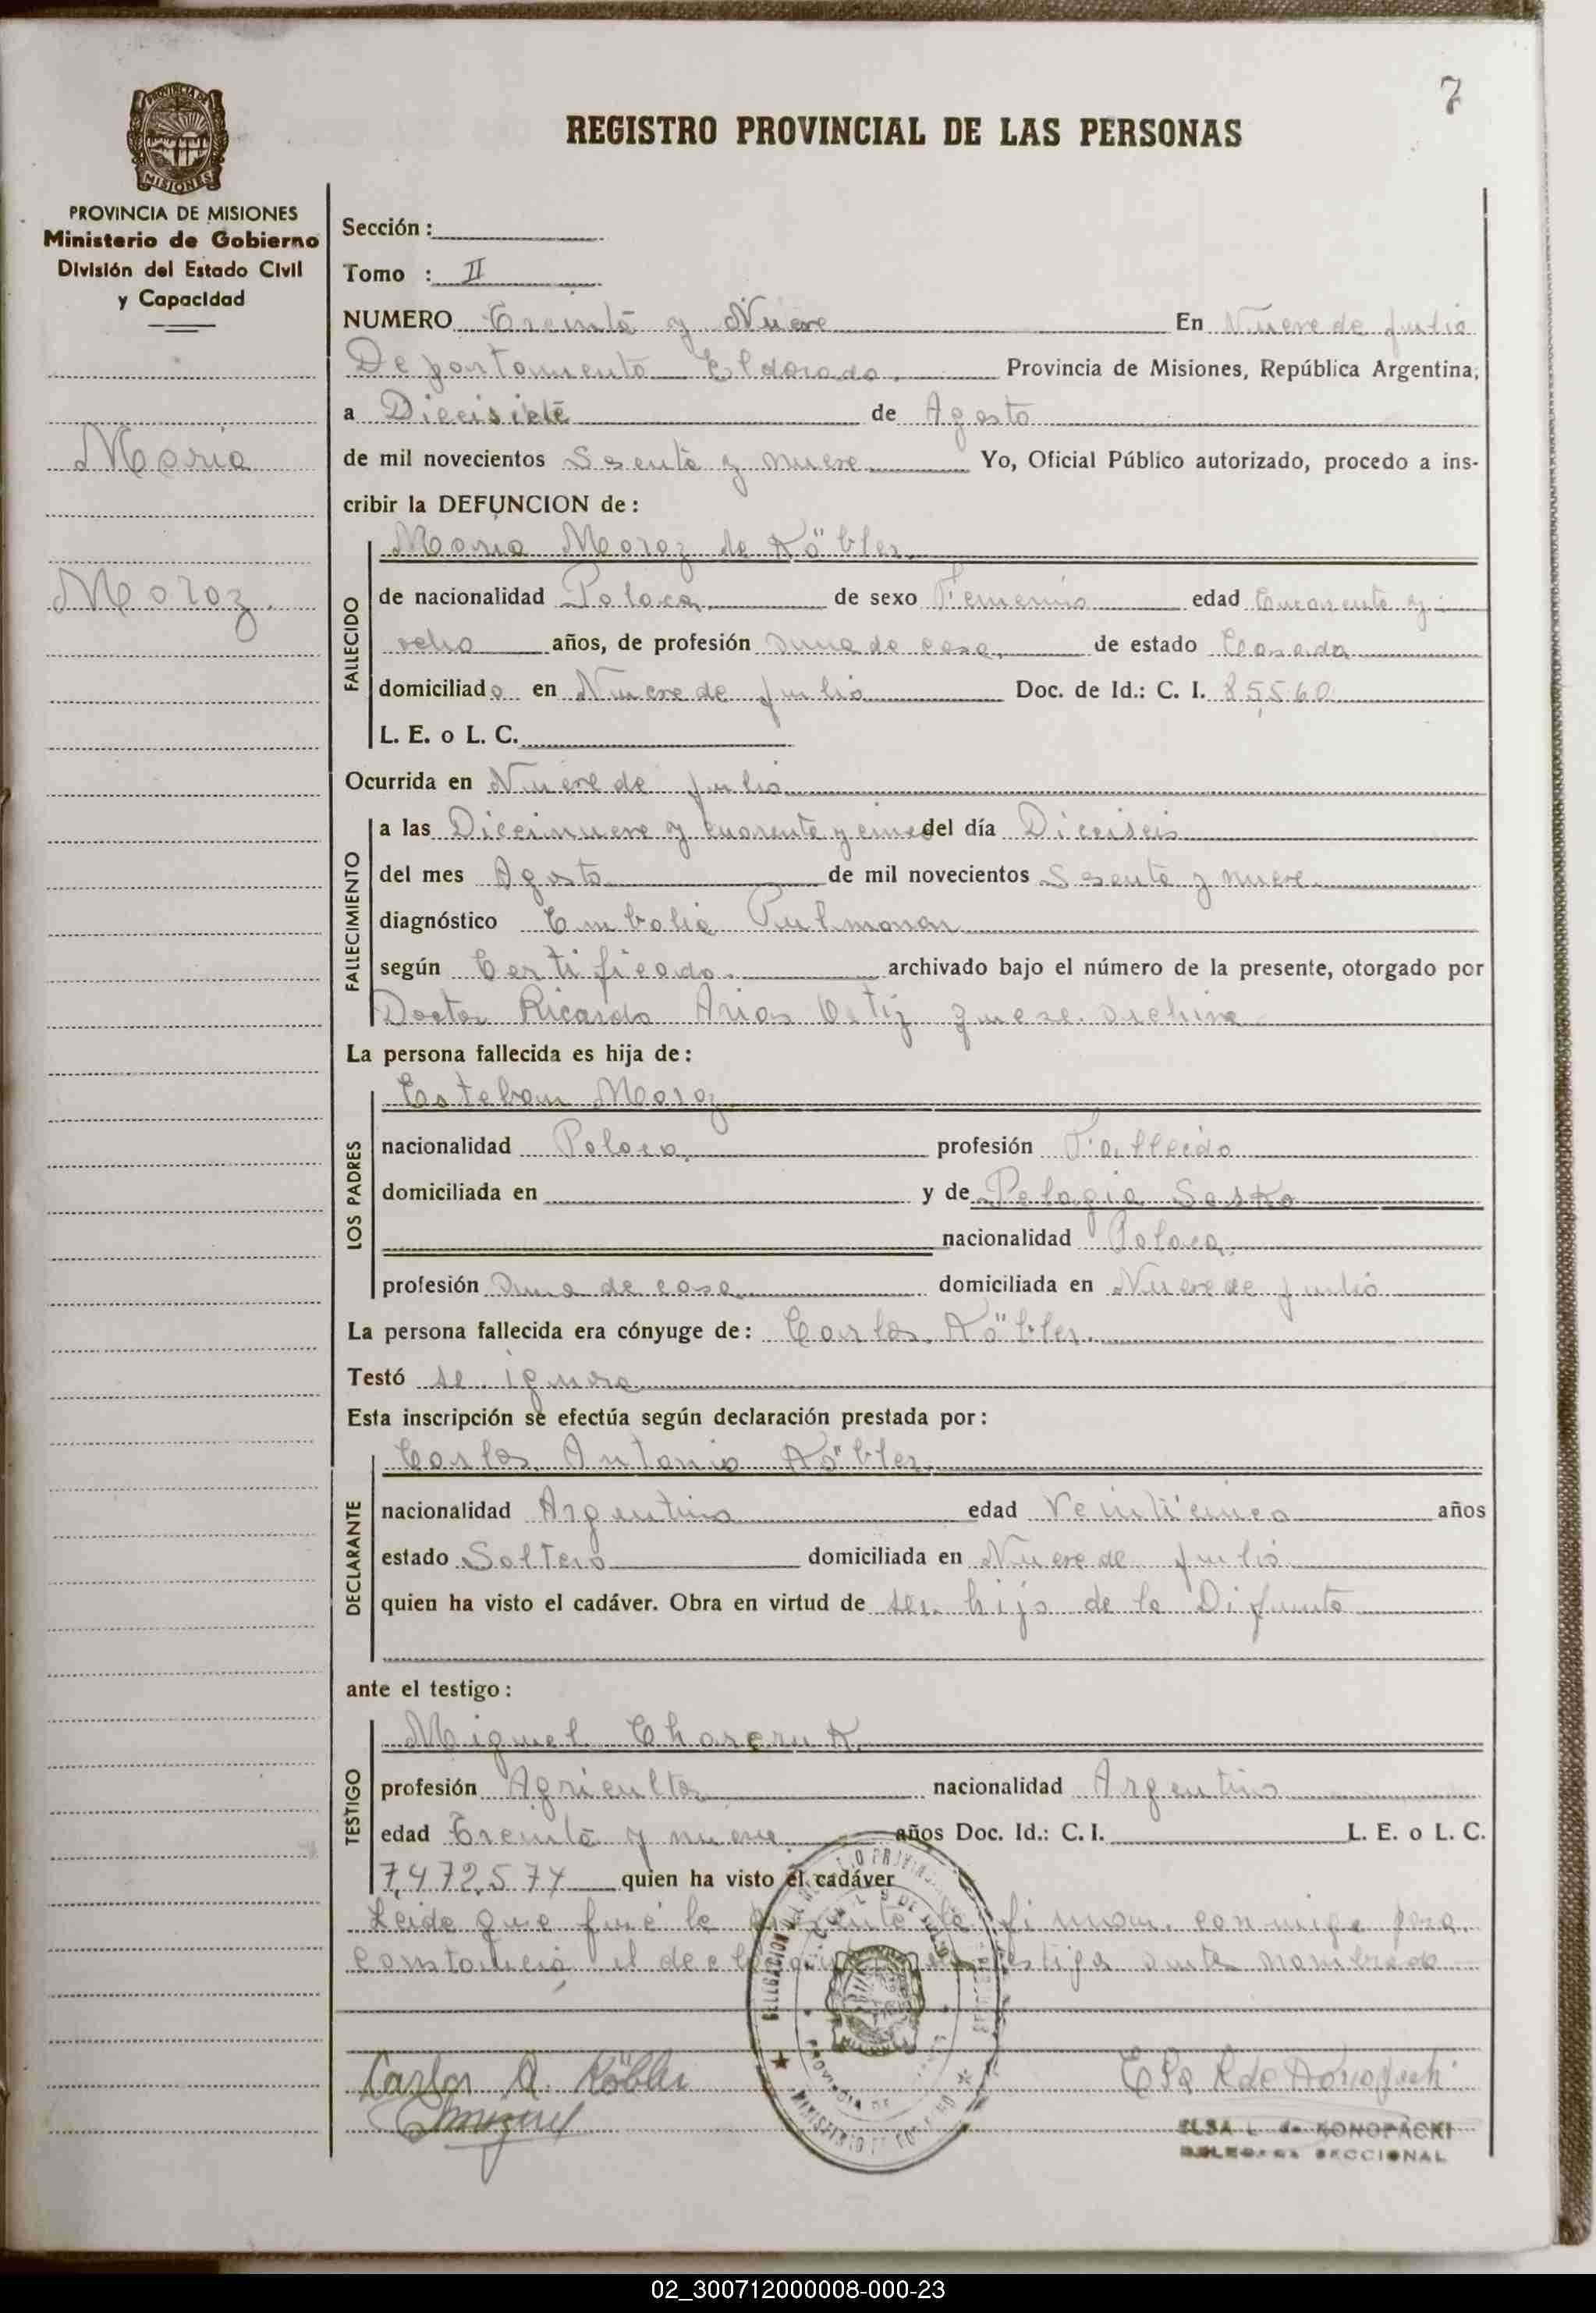 7
REGISTRO PROVINCIAL DE LAS PERSONAS
PROVINCIA DE MISIONES
PROVINCIA DE MISIONES
Ministerio de Gobierno
División del Estado Civil
y Capacidad
Maria
Moroz.
Sección:
Tomo : II
NUMERO Treinta y Nueve En Nueve de Julio
Departamento Eldorado. Provincia de Misiones, República Argentina,
a Diecisiete de Agosto
de mil novecientos Sesenta y nueve Yo, Oficial Público autorizado, procedo a ins-
cribir la DEFUNCION de:
Maria Moroz de Köbler
FALLECIDO
de nacionalidad Polaca de sexo Femenino edad Cuarenta y
ocho años, de profesión Ama de casa de estado Casada
domiciliado en Nueve de Julio Doc. de Id.: C. I. 85,560
L. E. o L. C.
Ocurrida en Nueve de Julio
FALLECIMIENTO
a las Diecinueve y cuarenta y cinco del día Dieciseis
del mes Agosto de mil novecientos Sesenta y nueve
diagnóstico Embolia Pulmonar
según Certificado. archivado bajo el número de la presente, otorgado por
Doctor Ricardo Arias Ortiz que se archiva
La persona fallecida es hija de:
Esteban Moroz
LOS PADRES
nacionalidad Polaca profesión Fallecido
domiciliada en y de Pelagia Sasko
nacionalidad Polaca
profesión Ama de casa domiciliada en Nueve de Julio
La persona fallecida era cónyuge de: Carlos Köbler.
Testó se ignora
Esta inscripción se efectúa según declaración prestada por:
Carlos Antonio Köbler
DECLARANTE
nacionalidad Argentino edad Veinticinco años
estado Soltero domiciliada en Nueve de Julio
quien ha visto el cadáver. Obra en virtud de ser hijo de la Difunta
ante el testigo:
Miguel
TESTIGO
profesión Agricultor nacionalidad Argentino
edad Treinta y nueve años Doc. Id.: C. I. L. E. o L. C.
7,472,574 quien ha visto el cadáver
Leida que fué la presente la firman conmigo para
constancia el declarante y testigo antes nombrado
Carlos A. Köbler
Elsa L de Konopacki
ELSA L de KONOPACKI
DELEGADA SECCIONAL
02_300712000008-000-23